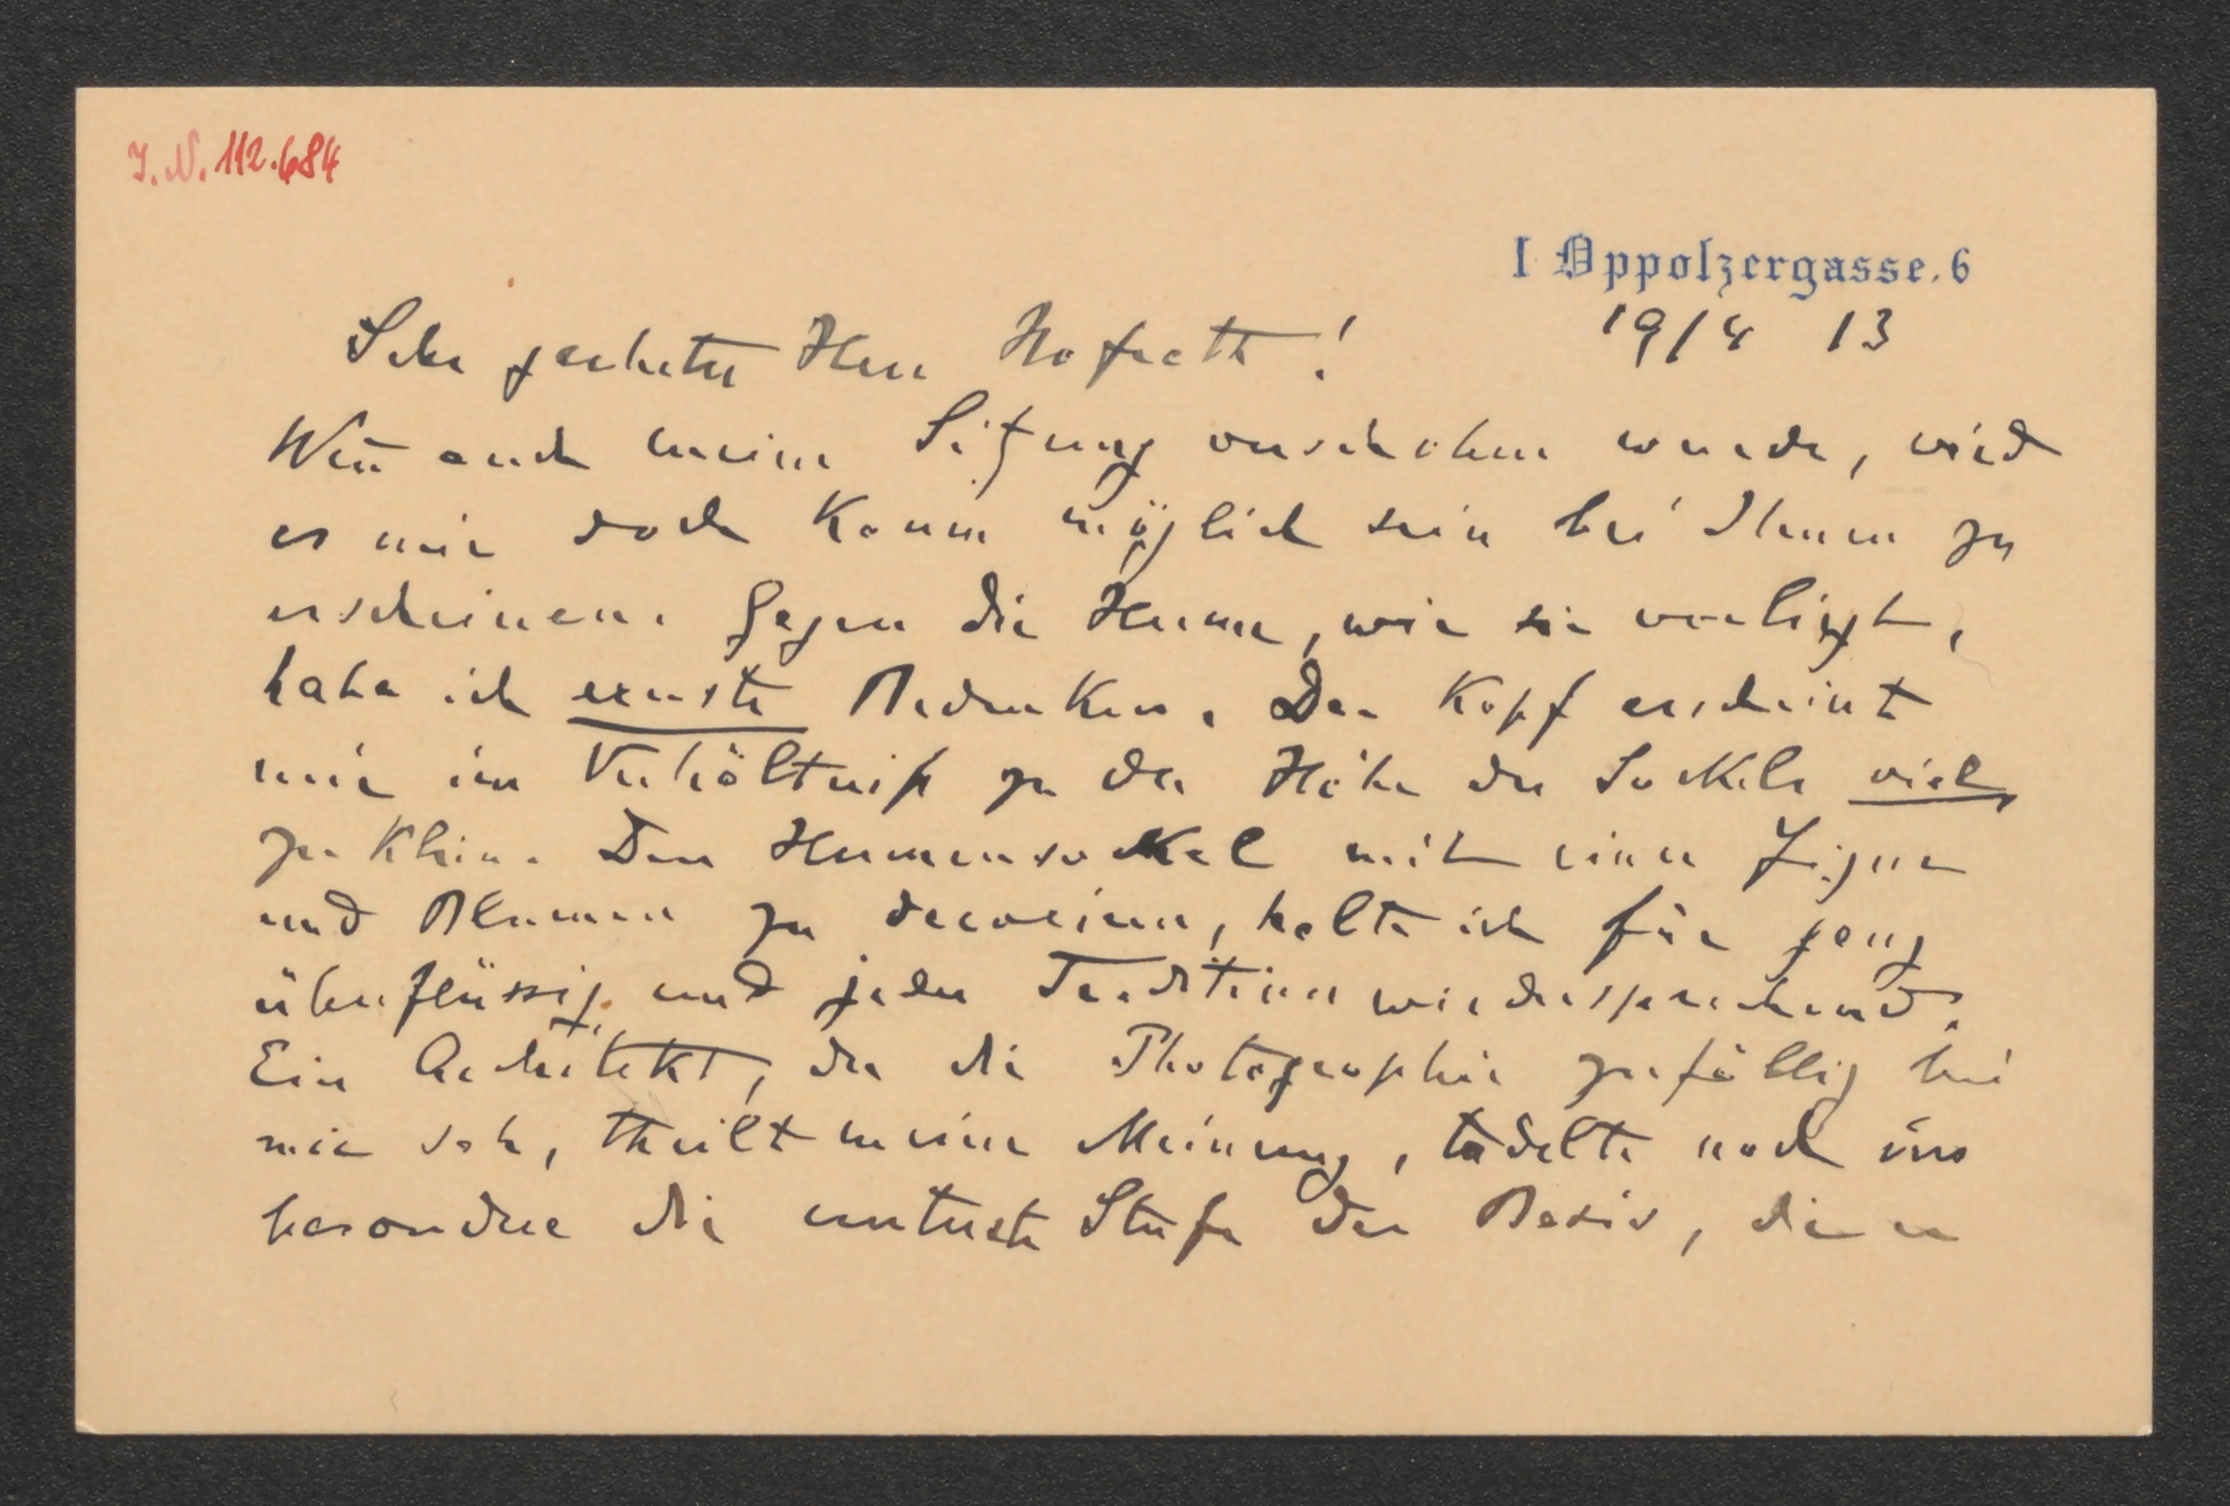 J. N. 112.684
I Oppolzergasse. 6
19/4 13
Sehr geehrter Herr Hofrath!
Wen̄ auch meine Sitzung verschoben wurde, wird
es mir doch kaum möglich sein bei Ihnen zu
erscheinen. Gegen die Herme, wie sie vorliegt,
habe ich ernste Bedenken. Der Kopf erscheint
mir im Verhältniß zu der Höhe des Sockels viel
zu klein. Den Hermensockel mit einer Figur
und Blumen zu decoriren, halte ich für ganz
überflüssig und jeder Tradition wiedersprechend.
Ein Architekt, der die Photographie zufällig bei
mir sah, theilt meine Meinung, tadelte noch ins
besondere die unterste Stufe der Basis, die er